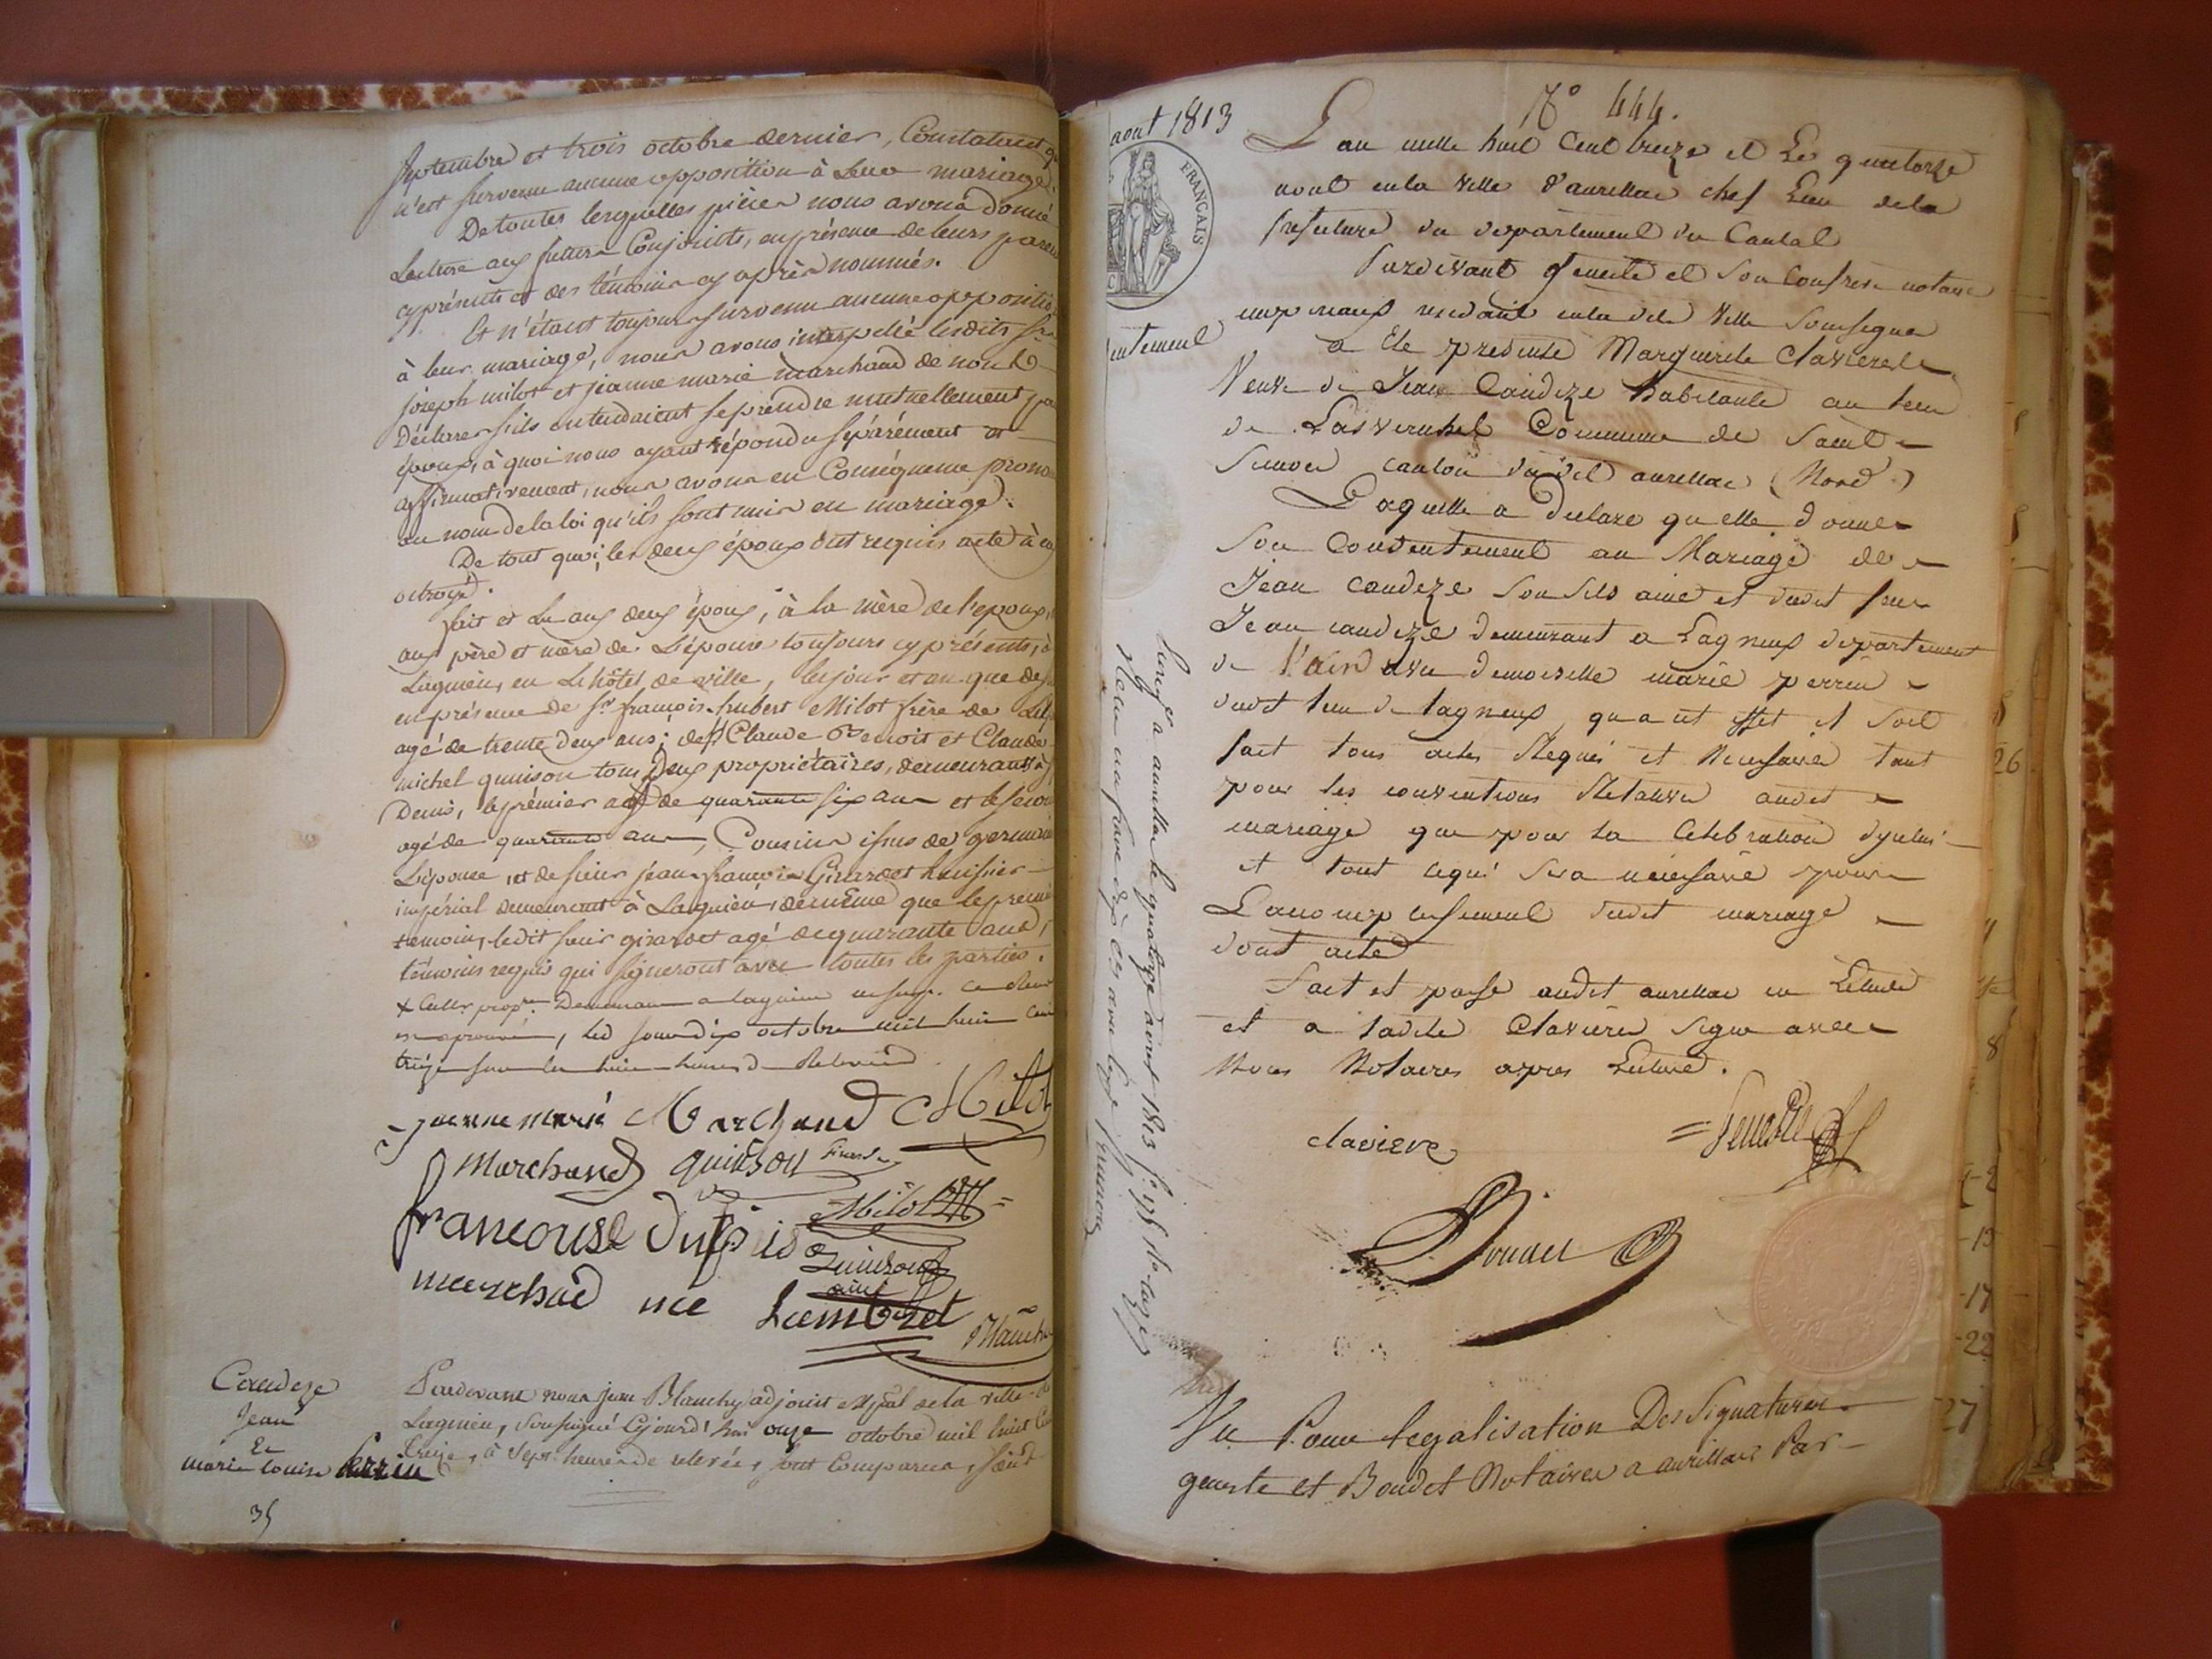 septembre et trois octobre dernier, Constatant q
n'est survenu aucune opposition à Leur mariage.
De toutes lesquelles pièces nous avons donné
Lecture aux futurs Conjoints, en présence de leurs paren
cy présents et des témoins cy après nommés.
Et n'étant toujours survenu aucune oppositio
à leur mariage, nous avons interpellé lesdits Sr
joseph milot et jeanne marie marchand de nous
Déclarer s'ils entendaient se prendre mutuellement po
époux, à quoi nous ayant répondu séparément et
affirmativement, nous avons en Conséquence prono
au nom de la loi qu'ils sont unis en mariage.
De tout quoi, les deux époux ont requis acte à eu
octroyé.
fait et Lu aux deux époux, à la mère de l'époux,
aux père et mère de L'épouse toujours cy présents, à
Lagnieu, en L'hôtel de ville, les jour et an que de
en présence de Sr françois-hubert Milot frère de L
agé de trente deux ans; de Claude Benoit et Claude
michel quinson tous Deux propriétaires, demeurants à
Denis, le prémier agé de quarante six ans et le seco
agé de quarante ans, Cousins issus de germain
L'épouse, et de sieur jean-françois Girardet huissier
impérial demeurant à Lagnieu, de même que le premie
témoin, ledit sieur girardet agé de quarante ans,
témoins requis qui signeront avec toutes les parties.
octobre mil huit cen
treize sur les huit heures de relevée
jeanne marie Marchand Milot
Marchand quinson
francoise Dupuis Milot
marchad nee Quinson
ainé
Lambret Blanch
Caudeze
Jean
Et
marie Louise Perrin
35
Pardevant nous jean Blanchy adjoint Mpal de la ville de
Lagnieu, soussigné cejourd'hui onze octobre mil huit C
treize, à sept heures de relevée, sont Comparus, Jean
aout 1813
FRANÇAIS
entement
No 444.
L an mille huit Cent treize et Le quatorze
aout en la ville d'aurillac chef Lieu de la
prefecture du departement du Cantal
Pardevant Geneste et Son Confrere notaires
imperiaux residant en la dite Ville Soussignes
a Eté presente Marguerite Claviere
Veuve de Jean Caudeze habitante au lieu
de Lasvernhes Commune de Saint
Simon canton dudit aurillac (Nord)
Laquelle a declare qu elle donne
Son Consentement au Mariage de
Jean caudeze Son fils ainé et dudit feu
Jean caudeze demeurant a Lagneux departement
de l'ain avec demoiselle marie perrin
dudit lieu de Lagneux, qu a cet effet il soit
fait tous actes Requis et Necessaires tant
pour les conventions Relatives audit
mariage que pour la Celebration dycelui
et tout cequi sera necessaire pour
L'accomplissement dudit mariage
dont acte
Fait et passé audit aurillac en L'etude
et a ladite Claviere signe avec
Nous Notaires apres Lecture.
claviere Geneste
Boudet
Enregé a aurillac le quatorze aout 1813
Recu un franc dix ces avec
Vu Pour legalisation Des Signatures
geneste et Boudet Notaires a aurillac Par
26
8
2
15
17
22
27